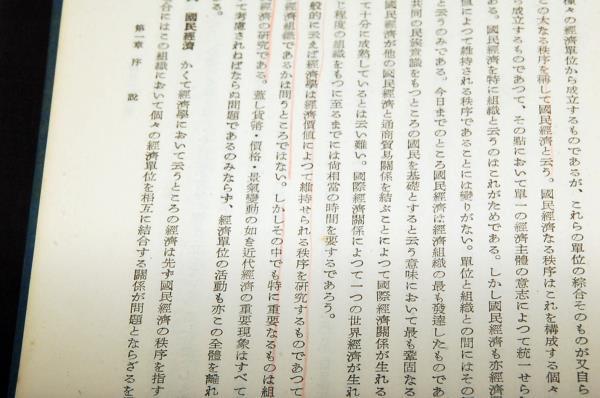 種々の經濟單位から成立するものであるが、これらの單位の綜合そのものが又自ら
この大なる秩序を稱して國民經濟と云う。國民經濟なる秩序はこれを構成する個々
ら成立するものであつて、その點において單一の經濟主體の意志によつて統一せら
ある。國民經濟を特に組織と云うのはこれがためである。しかし國民經濟も亦經濟
値によつて維持される秩序であることには變りがない。單位と組織との間にはその
と云うのみである。今日までのところ國民經濟は經濟組織の最も發達したものであ
共同の民族意識をもつところの國民を基礎とすると云う意味において最も鞏固なる
國民經濟が他の國民經濟と通商貿易關係を結ぶことによつて國際經濟關係が生れる
て十分に成熟しているとは云い難い。國際經濟關係によつて一つの世界經濟が生れ
じ程度の組織をもつに至るまでには尙相當の時間を要するであろう。
般的に云えば經濟學は經濟價値によつて維持せられる秩序を研究するものであつて
經濟組織であるかは問うところではない。しかしその中でも特に重要なるものは組
經濟の研究である。蓋し貨幣・價格・景氣變動の如き近代經濟の重要現象はすべて
て考慮されねばならぬ問題であるのみならず、經濟單位の活動も亦この全體を離れ
國民經濟 かくて經濟學において云うところの經濟は先ず國民經濟の秩序を指す
合にはこの組織において個々の經濟單位を相互に結合する關係が問題とならざるを
第一章 序說